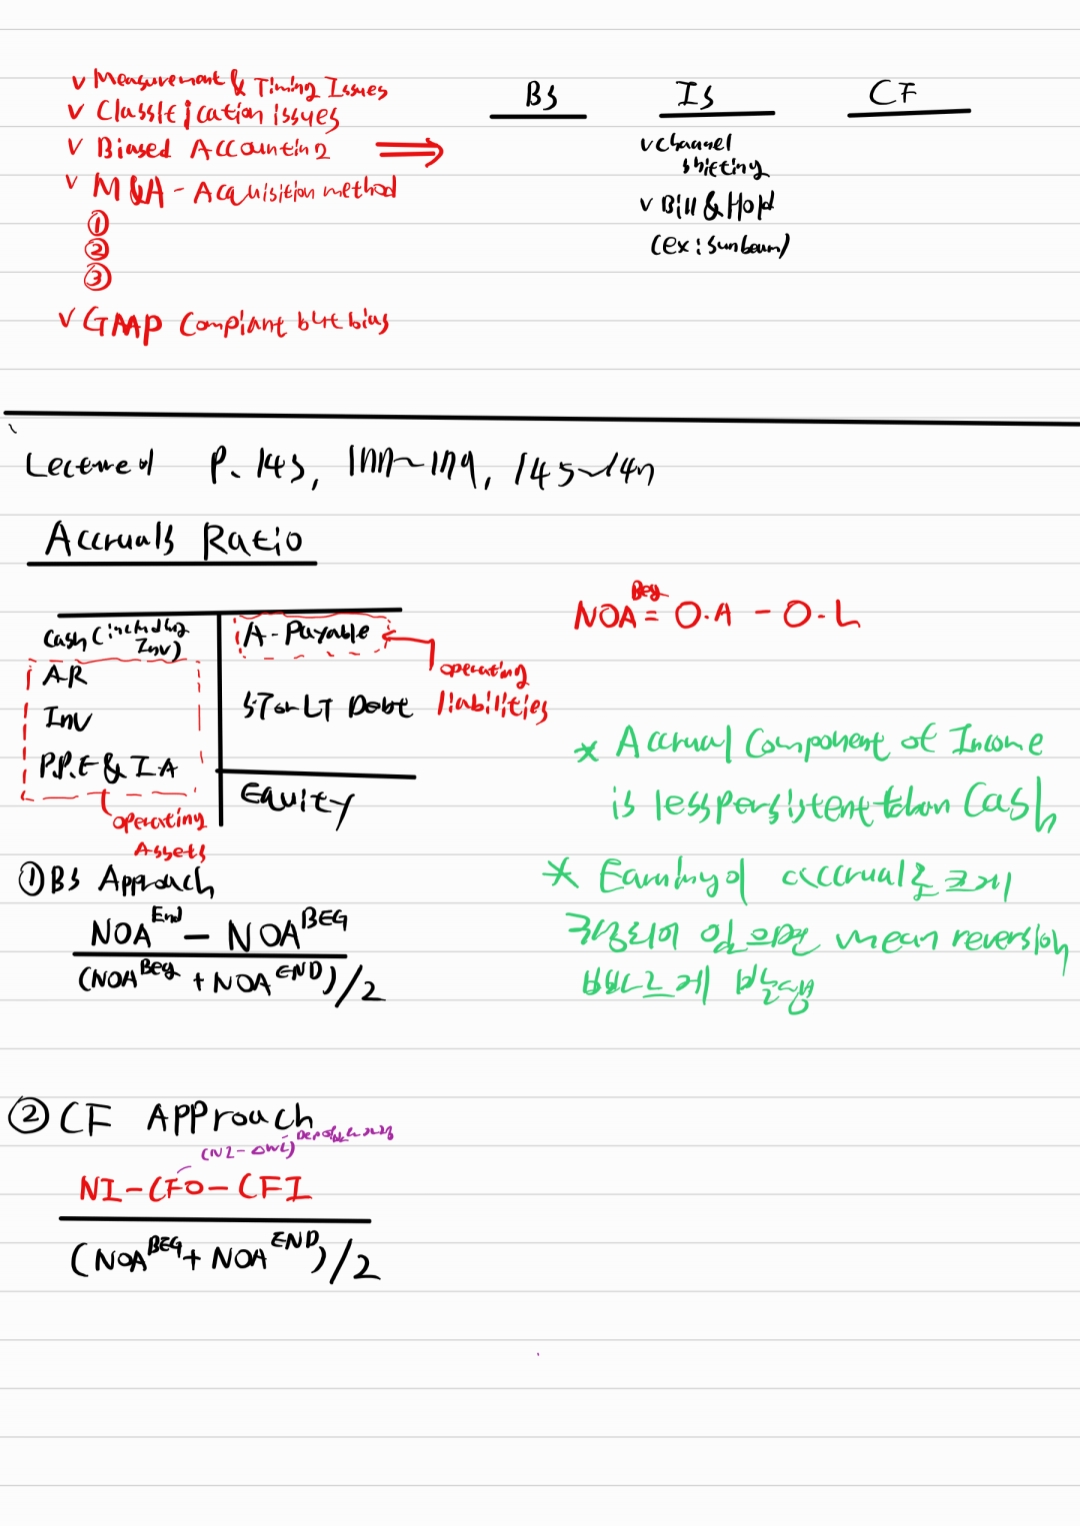 v Measurement & Timing Issues
v Classification issues
v Biased Accounting ⇒
v M&A - Acquisition method
①
②
③
v GAAP Compliant but bias
BS IS CF
v Channel
v Bill & Hold
(ex: Sunbeam)
P. 143, 177~179, 145~147
Accruals Ratio
Cash (including
Inv)
AR
Inv
P.P.E & I.A
operating
Assets
A-Payable
ST or LT Debt
Equity
operating
liabilities
Beg
NOA = O.A - O.L
* Accrual Component of Income
is less persistent than Cash
* Earning이 accrual로 크게
구성되어 있으면 mean reversion
빠르게 발생
① BS Approach
NOA^End - NOA^BEG
(NOA^Beg + NOA^END)/2
② CF Approach
(NI-ΔWC)
NI-CFO-CFI
(NOA^BEG + NOA^END)/2